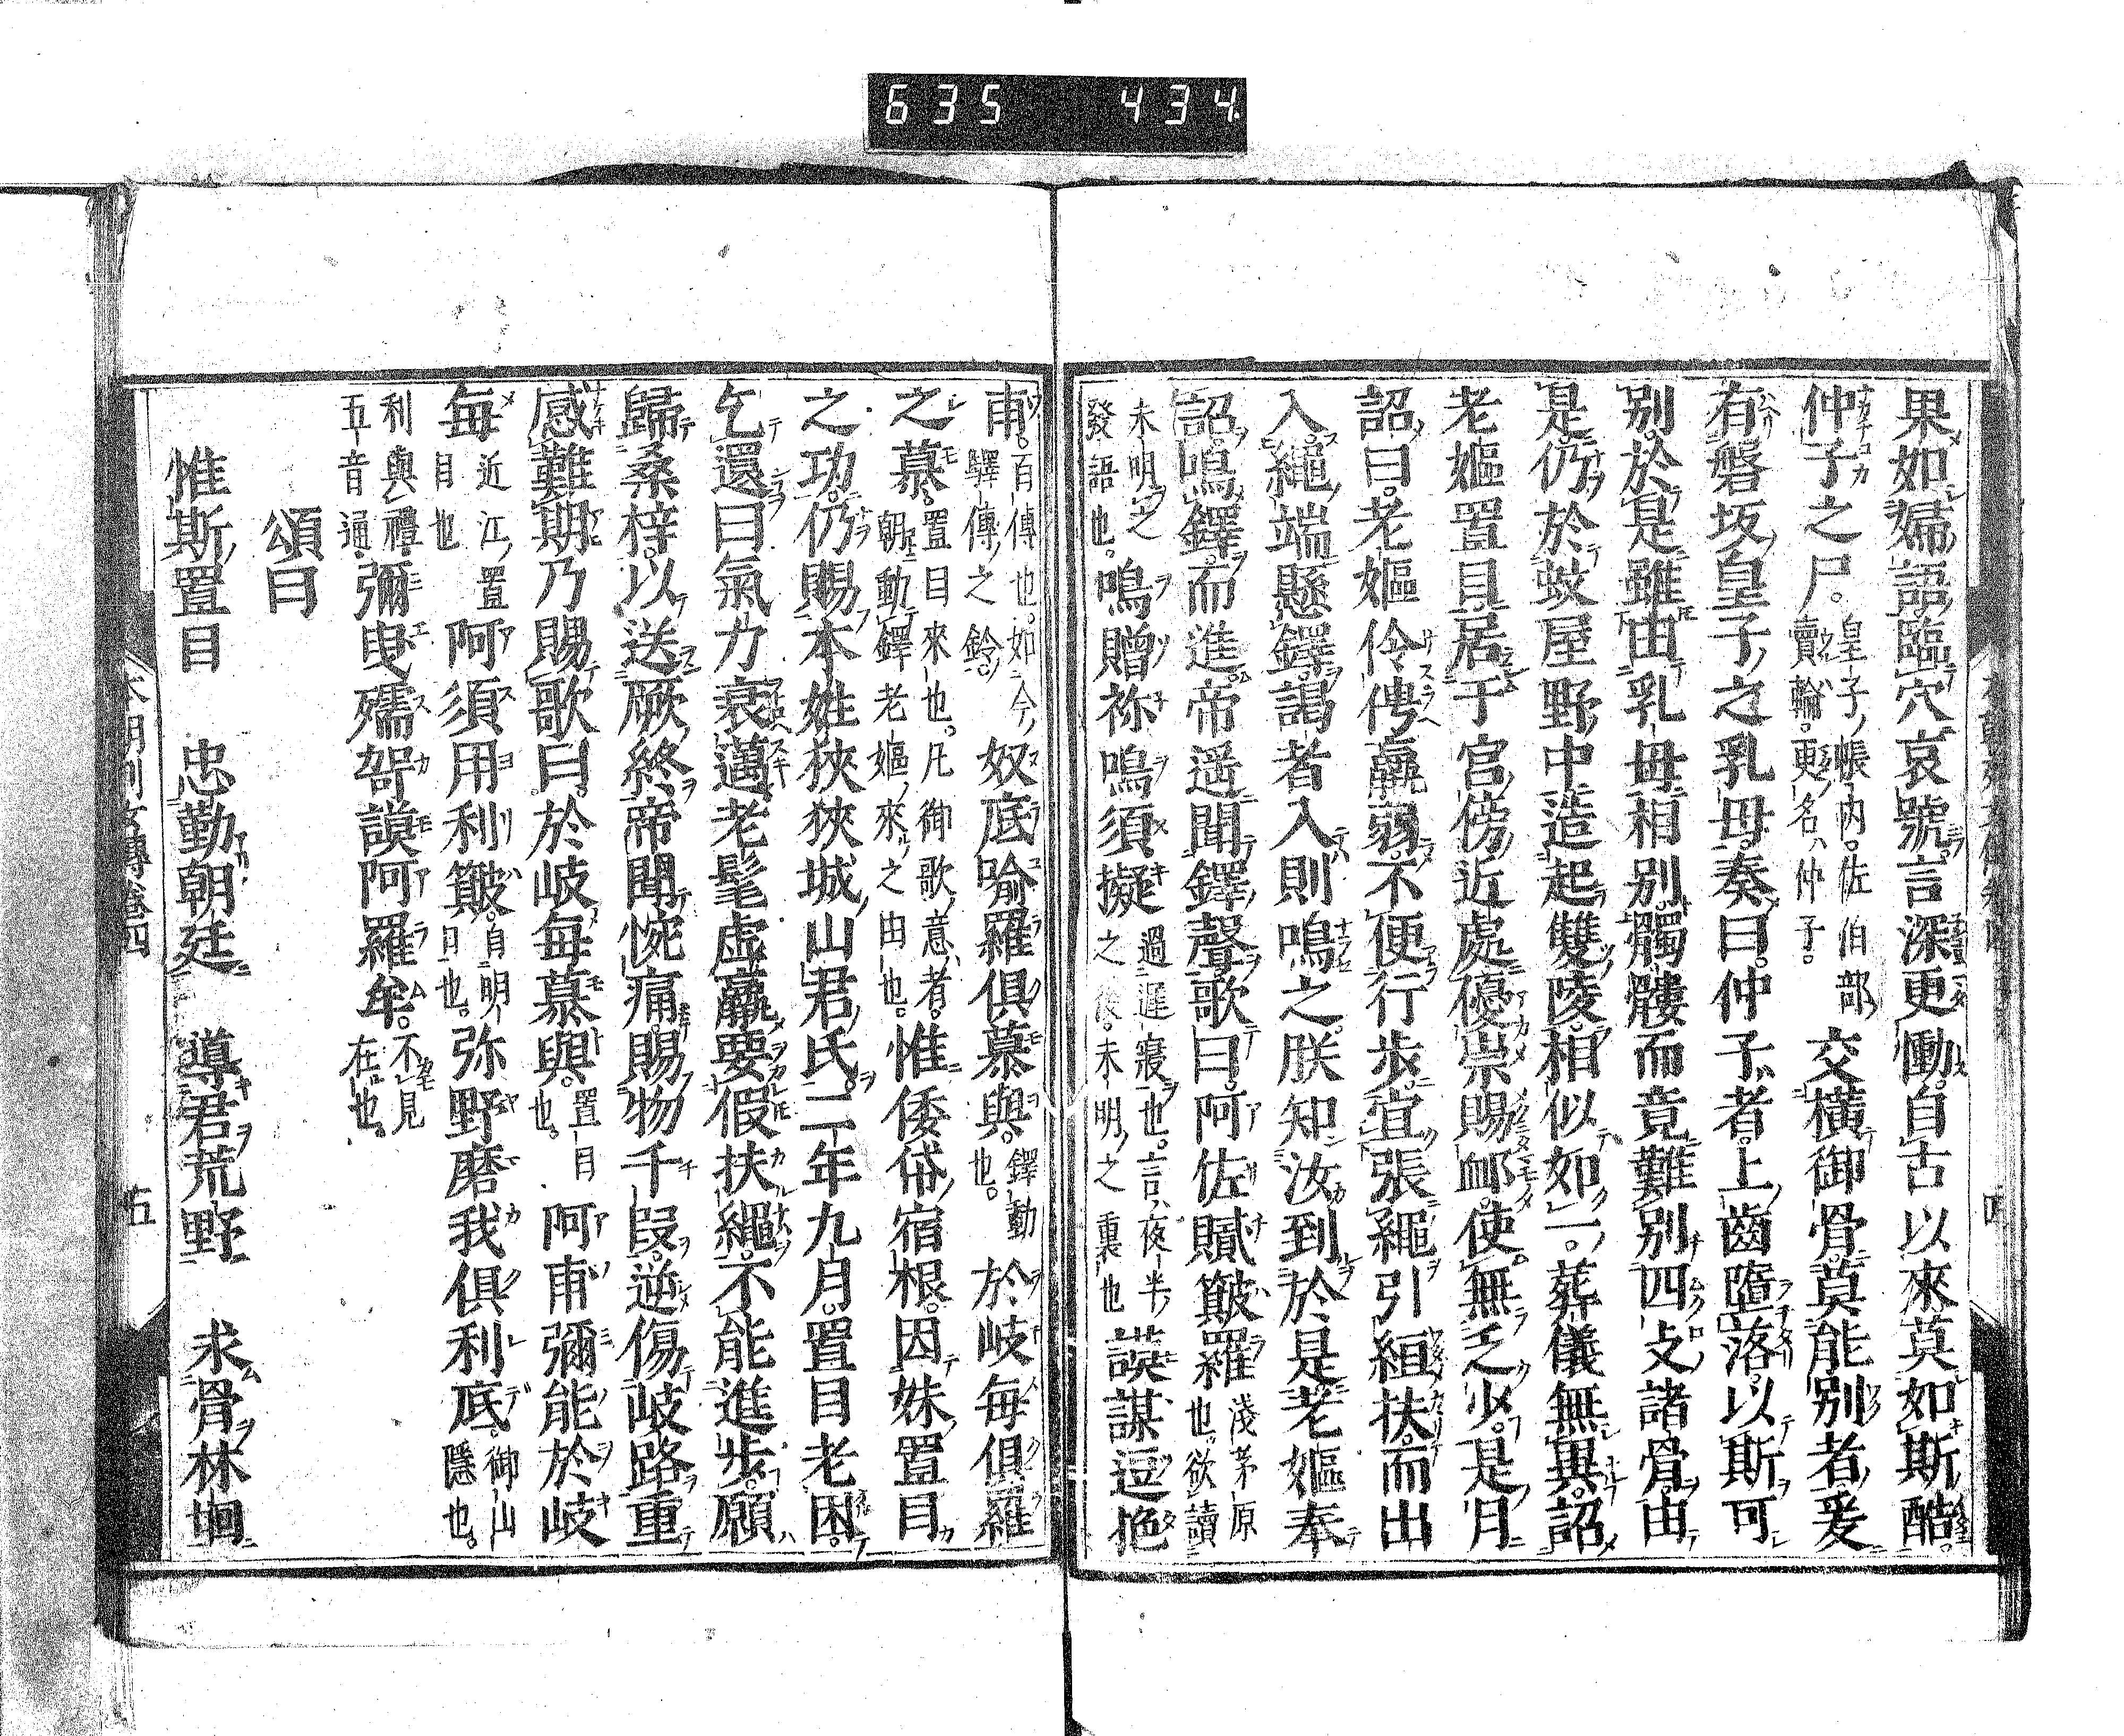 635 434
果如婦語臨穴哀號言深更慟自古以來莫如斯酷
仲子之尸皇子帳內佐伯部賣輪更名仲子交橫御骨莫能別者爰
有磐坂皇子之乳母奏曰仲子者上齒墮落以斯可
別於是雖由乳母相別髑髏而竟難別四支諸骨由
是仍於蚊屋野中造起雙陵相似如一葬儀無異詔
老嫗置目居于宮傍近處優崇賜䘏使無乏少是月
詔曰老嫗伶俜羸弱不便行步宜張繩引絙扶而出
入繩端懸鐸謁者入則鳴之朕知汝到於是老嫗奉
詔鳴鐸而進帝遥聞鐸聲歌曰阿佐膩簸羅淺茅原也欲讀
未明之發語也鳴贈祢鳴須擬過遲寢也言夜半之後未明之裏也謨謀逗拖
甫百傳也如今驛傳之鈴奴底喻羅俱慕與鐸動也於岐每俱羅
之慕置目來也凡御歌意者朝動鐸老嫗來之由也惟倭帒宿根因妹置目
之功仍賜本姓狹狹城山君氏二年九月置目老困
乞還曰氣力衰邁老髦虛羸要假扶繩不能進步願
歸桑梓以送厥終帝聞惋痛賜物千段逆傷岐路重
感難期乃賜歌曰於岐每慕與置目也阿甫彌能於岐
每近江置目也阿須用利簸自明日也弥野磨我俱利底御山隱也
利與禮五音通彌曳孺哿謨阿羅牟不見在也
頌曰
惟斯置目 忠勤朝廷 導君荒野 求骨林坰
本朝列女傳卷四 五